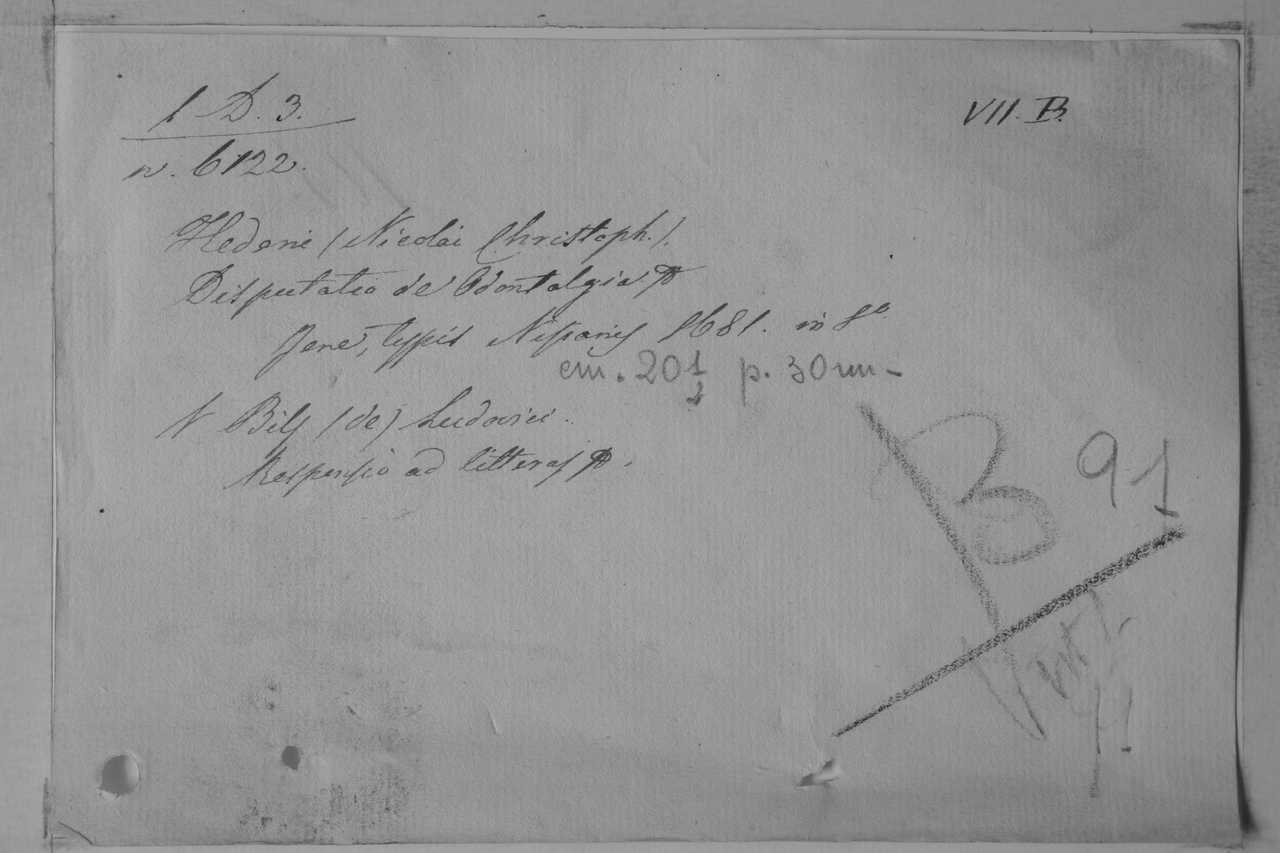 1 D. 3.
VII. B.
n. 6122.
Hederi (Nicolai Christoph.).
Disputatio de Odontalgia
Jene, typis Nisianis 1681. in 8°
cm. 20 1/2 p. 30 nn-
V Bils (de) Ludovici.
Responsio ad litteras
B 91